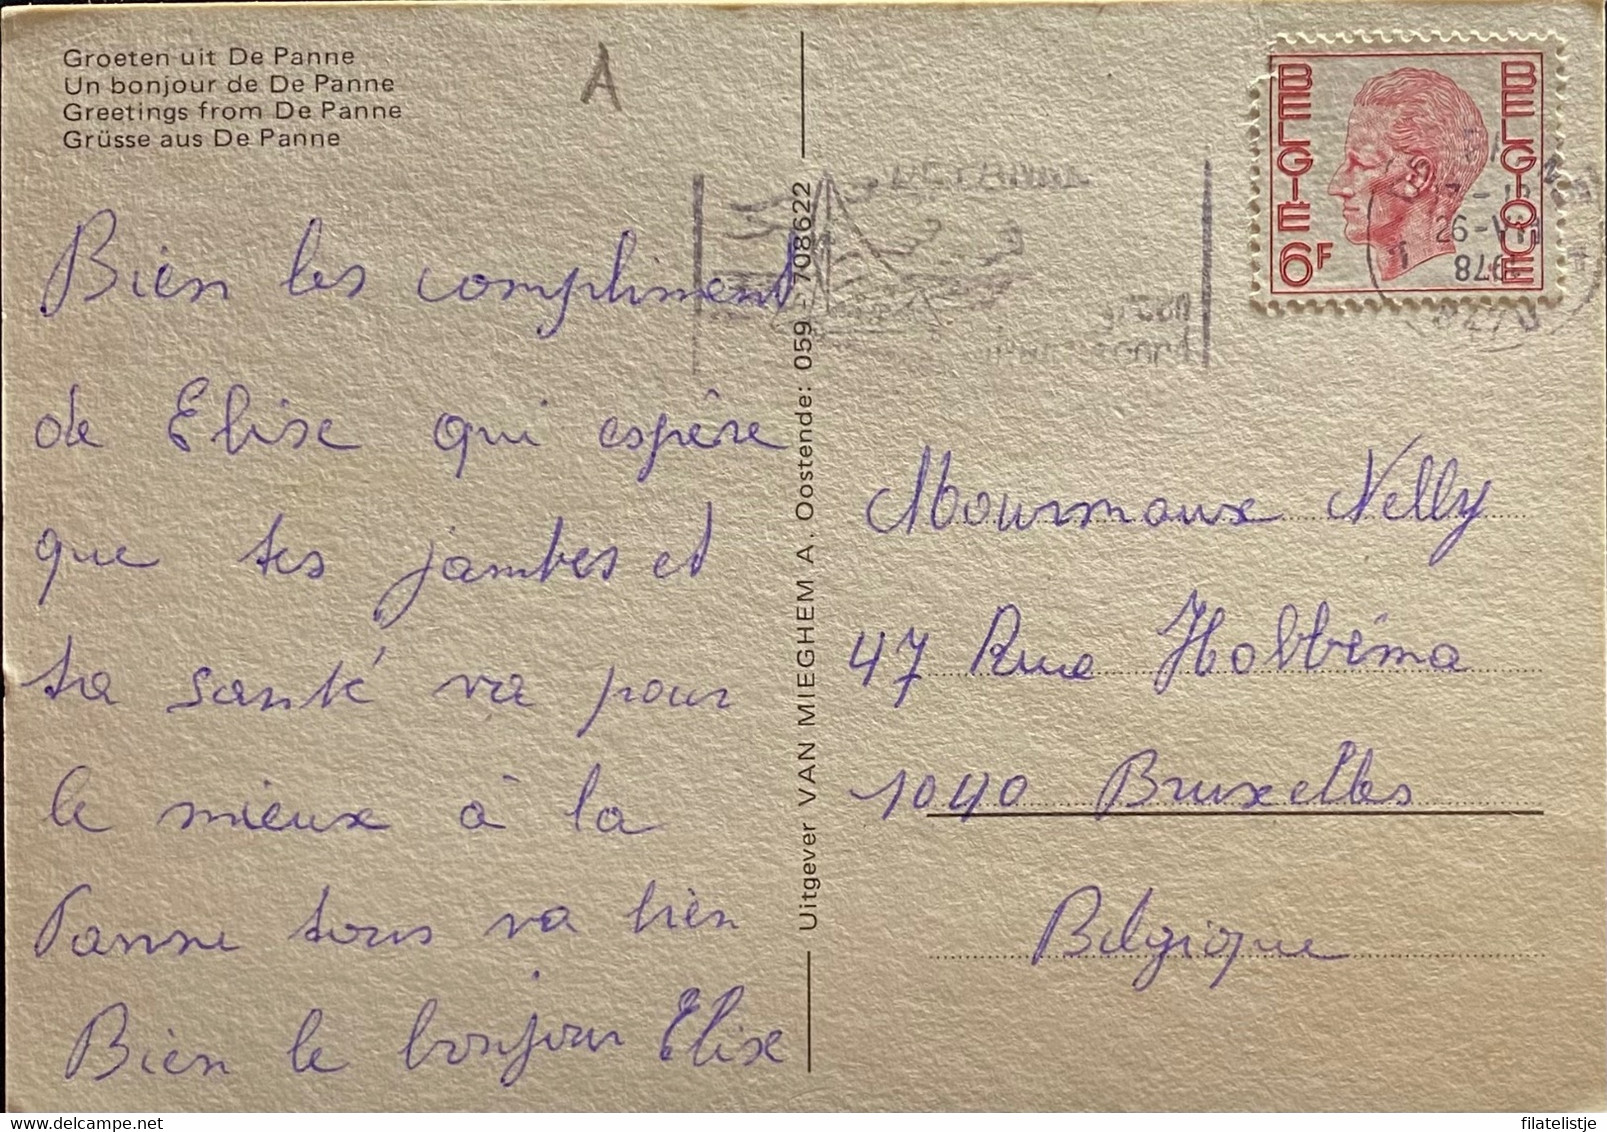 Groeten uit De Panne
Un bonjour de De Panne
Greetings from De Panne
Grüsse aus De Panne
A
Bien les compliment
de Elise qui espère
que tes jambes et
ta santé va pour
le mieux à la
Panne tous va bien
Bien le bonjour Elise
Uitgever VAN MIEGHEM A. Oostende: 059 - 708622
DE PANNE
BELGIE BELGIQUE
6F
26-VII
1978
Mourmaux Nelly
47 Rue Hobbéma
1040 Bruxelles
Belgique
delcampe.net
filatelistje